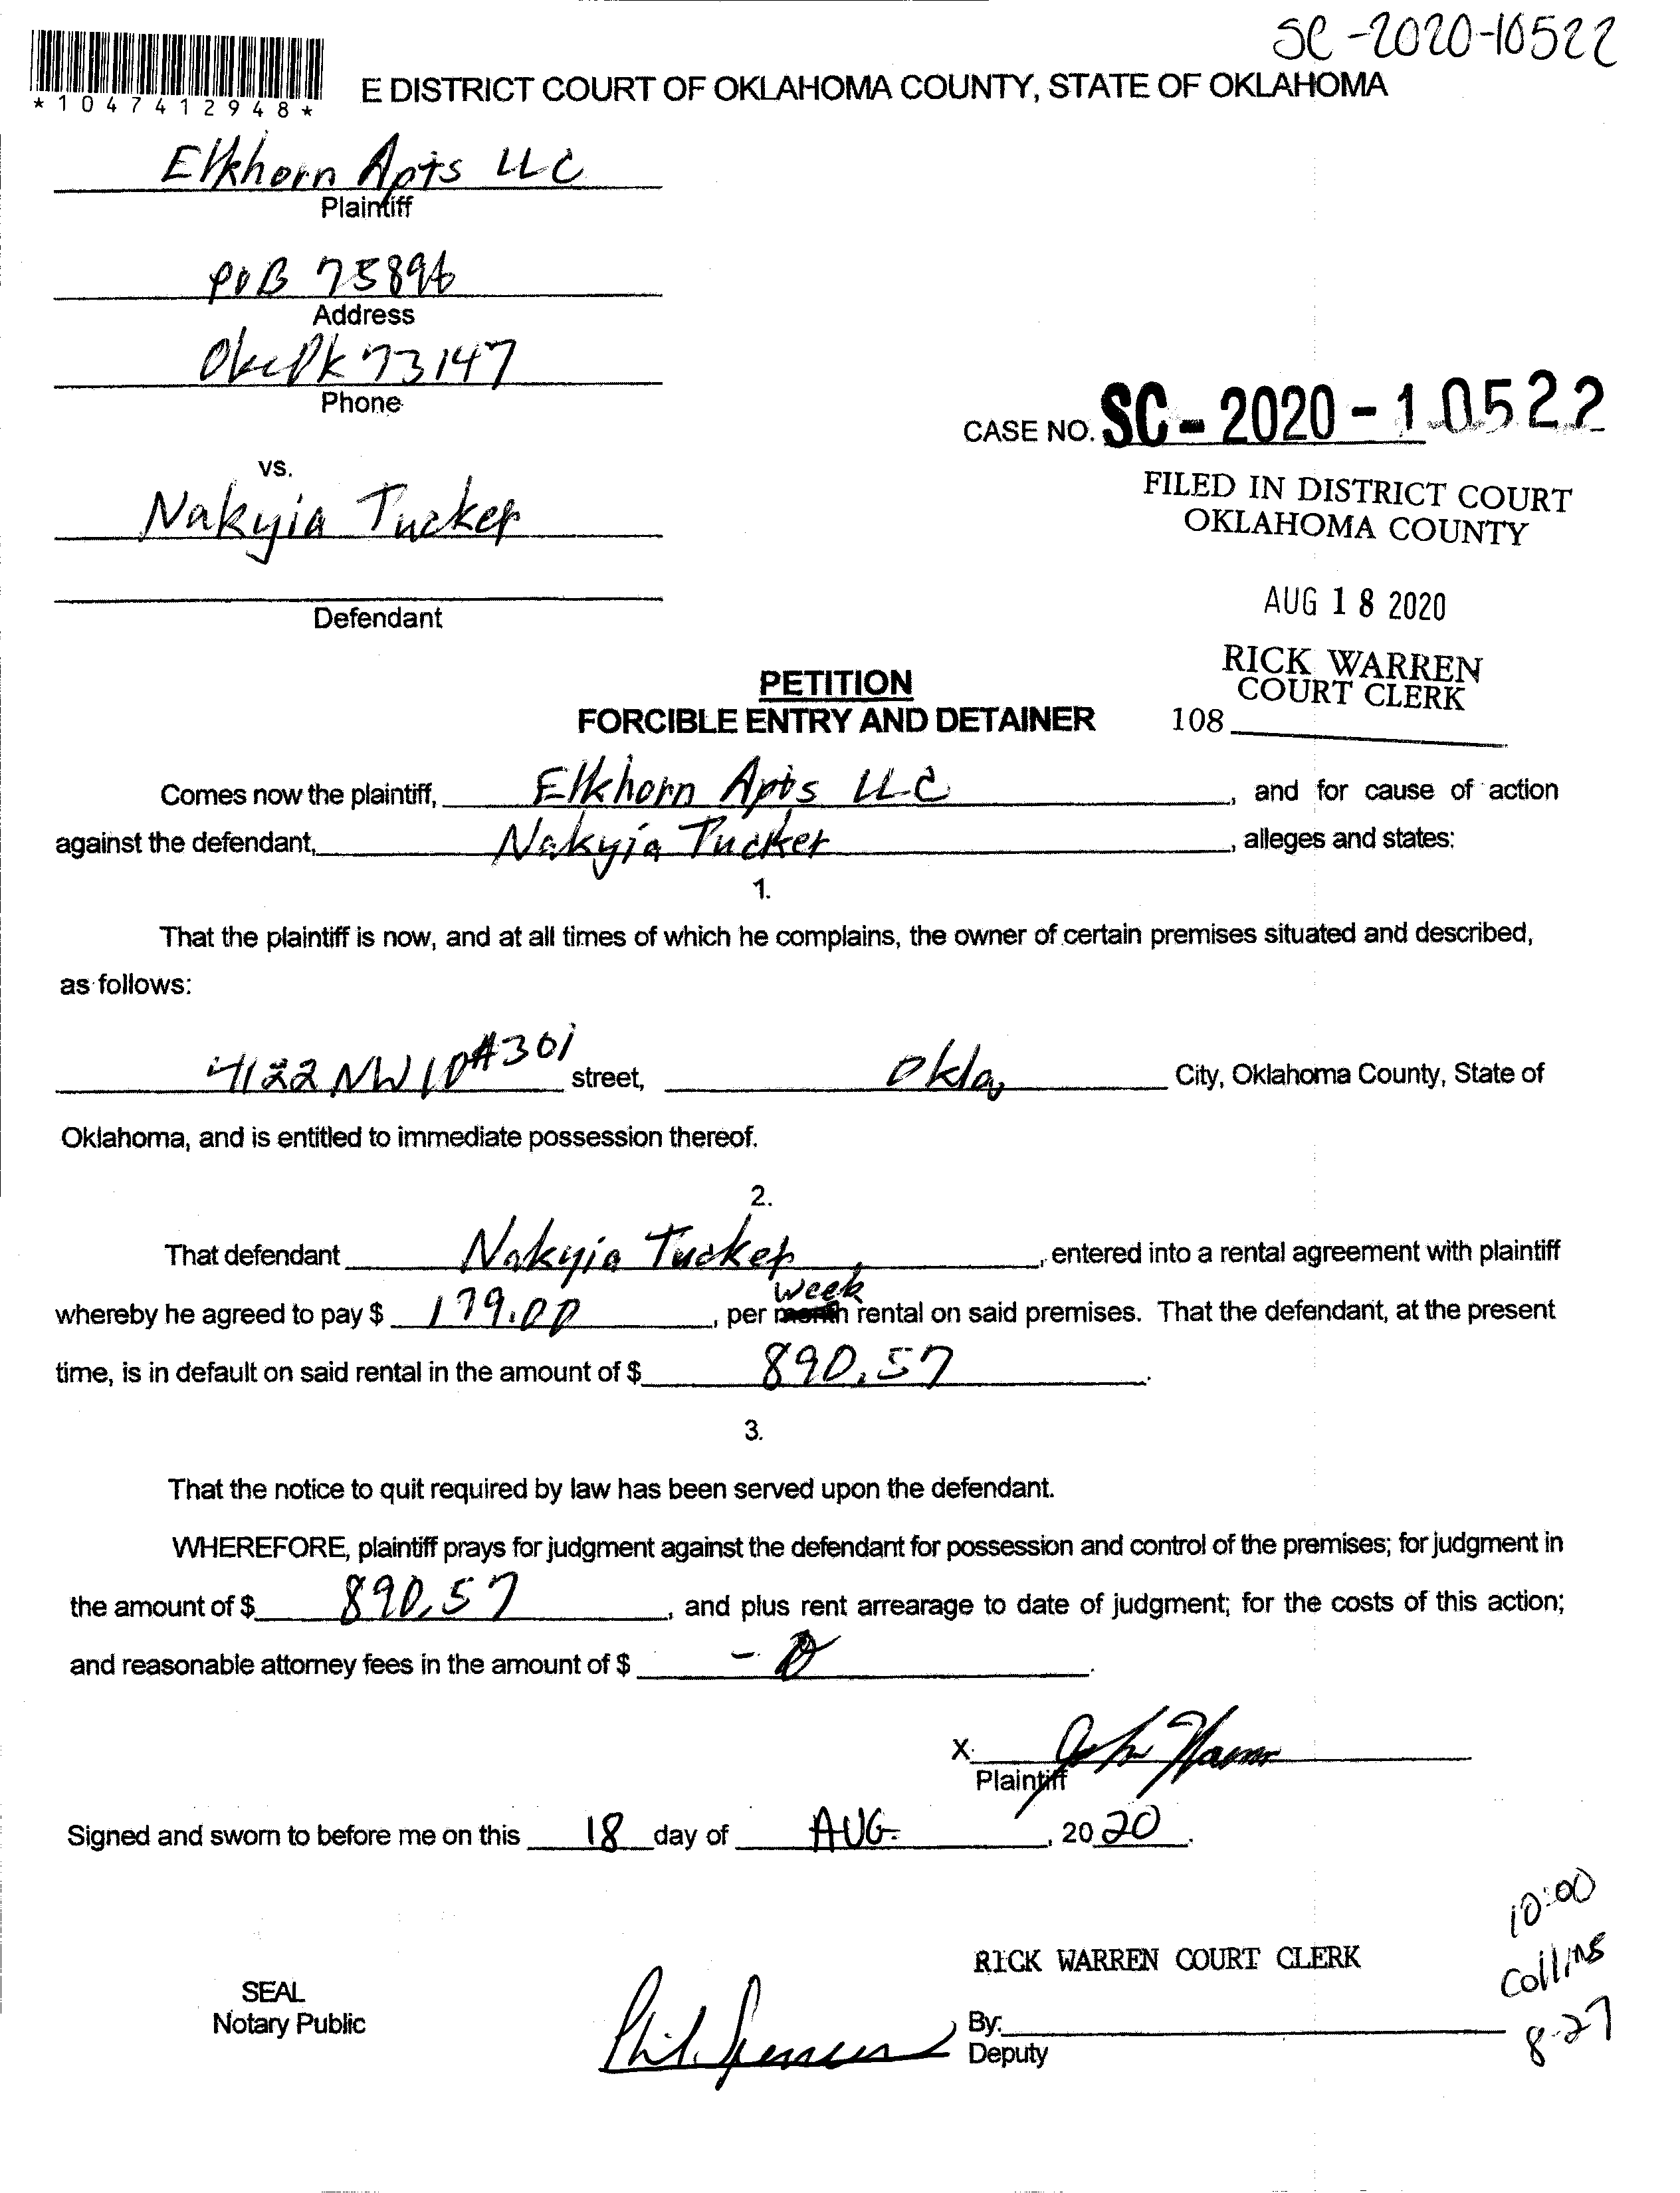 SC-2020-10522
*1047412948*
E DISTRICT COURT OF OKLAHOMA COUNTY, STATE OF OKLAHOMA
Elkhorn Apts LLC
Plaintiff
POB 75896
Address
Okc Ok 73147
Phone
CASE NO. SC-2020-10522
vs.
FILED IN DISTRICT COURT
OKLAHOMA COUNTY
Nakyia Tucker
AUG 18 2020
Defendant
RICK WARREN
COURT CLERK
108
PETITION
FORCIBLE ENTRY AND DETAINER
Comes now the plaintiff, Elkhorn Apts LLC, and for cause of action
against the defendant, Nakyia Tucker, alleges and states:
1.
That the plaintiff is now, and at all times of which he complains, the owner of certain premises situated and described,
as follows:
4122 NW 10 #301 street, Okla, City, Oklahoma County, State of
Oklahoma, and is entitled to immediate possession thereof.
2.
That defendant Nakyia Tucker, entered into a rental agreement with plaintiff
week
whereby he agreed to pay $ 179.00, per month rental on said premises. That the defendant, at the present
time, is in default on said rental in the amount of $ 890.57.
3.
That the notice to quit required by law has been served upon the defendant.
WHEREFORE, plaintiff prays for judgment against the defendant for possession and control of the premises; for judgment in
the amount of $ 890.57, and plus rent arrearage to date of judgment; for the costs of this action;
and reasonable attorney fees in the amount of $ - 0.
X
Plaintiff
Signed and sworn to before me on this 18 day of AUG., 2020.
10:00
Collins
8-27
RICK WARREN COURT CLERK
SEAL
Notary Public
Phil Spencer
By:
Deputy